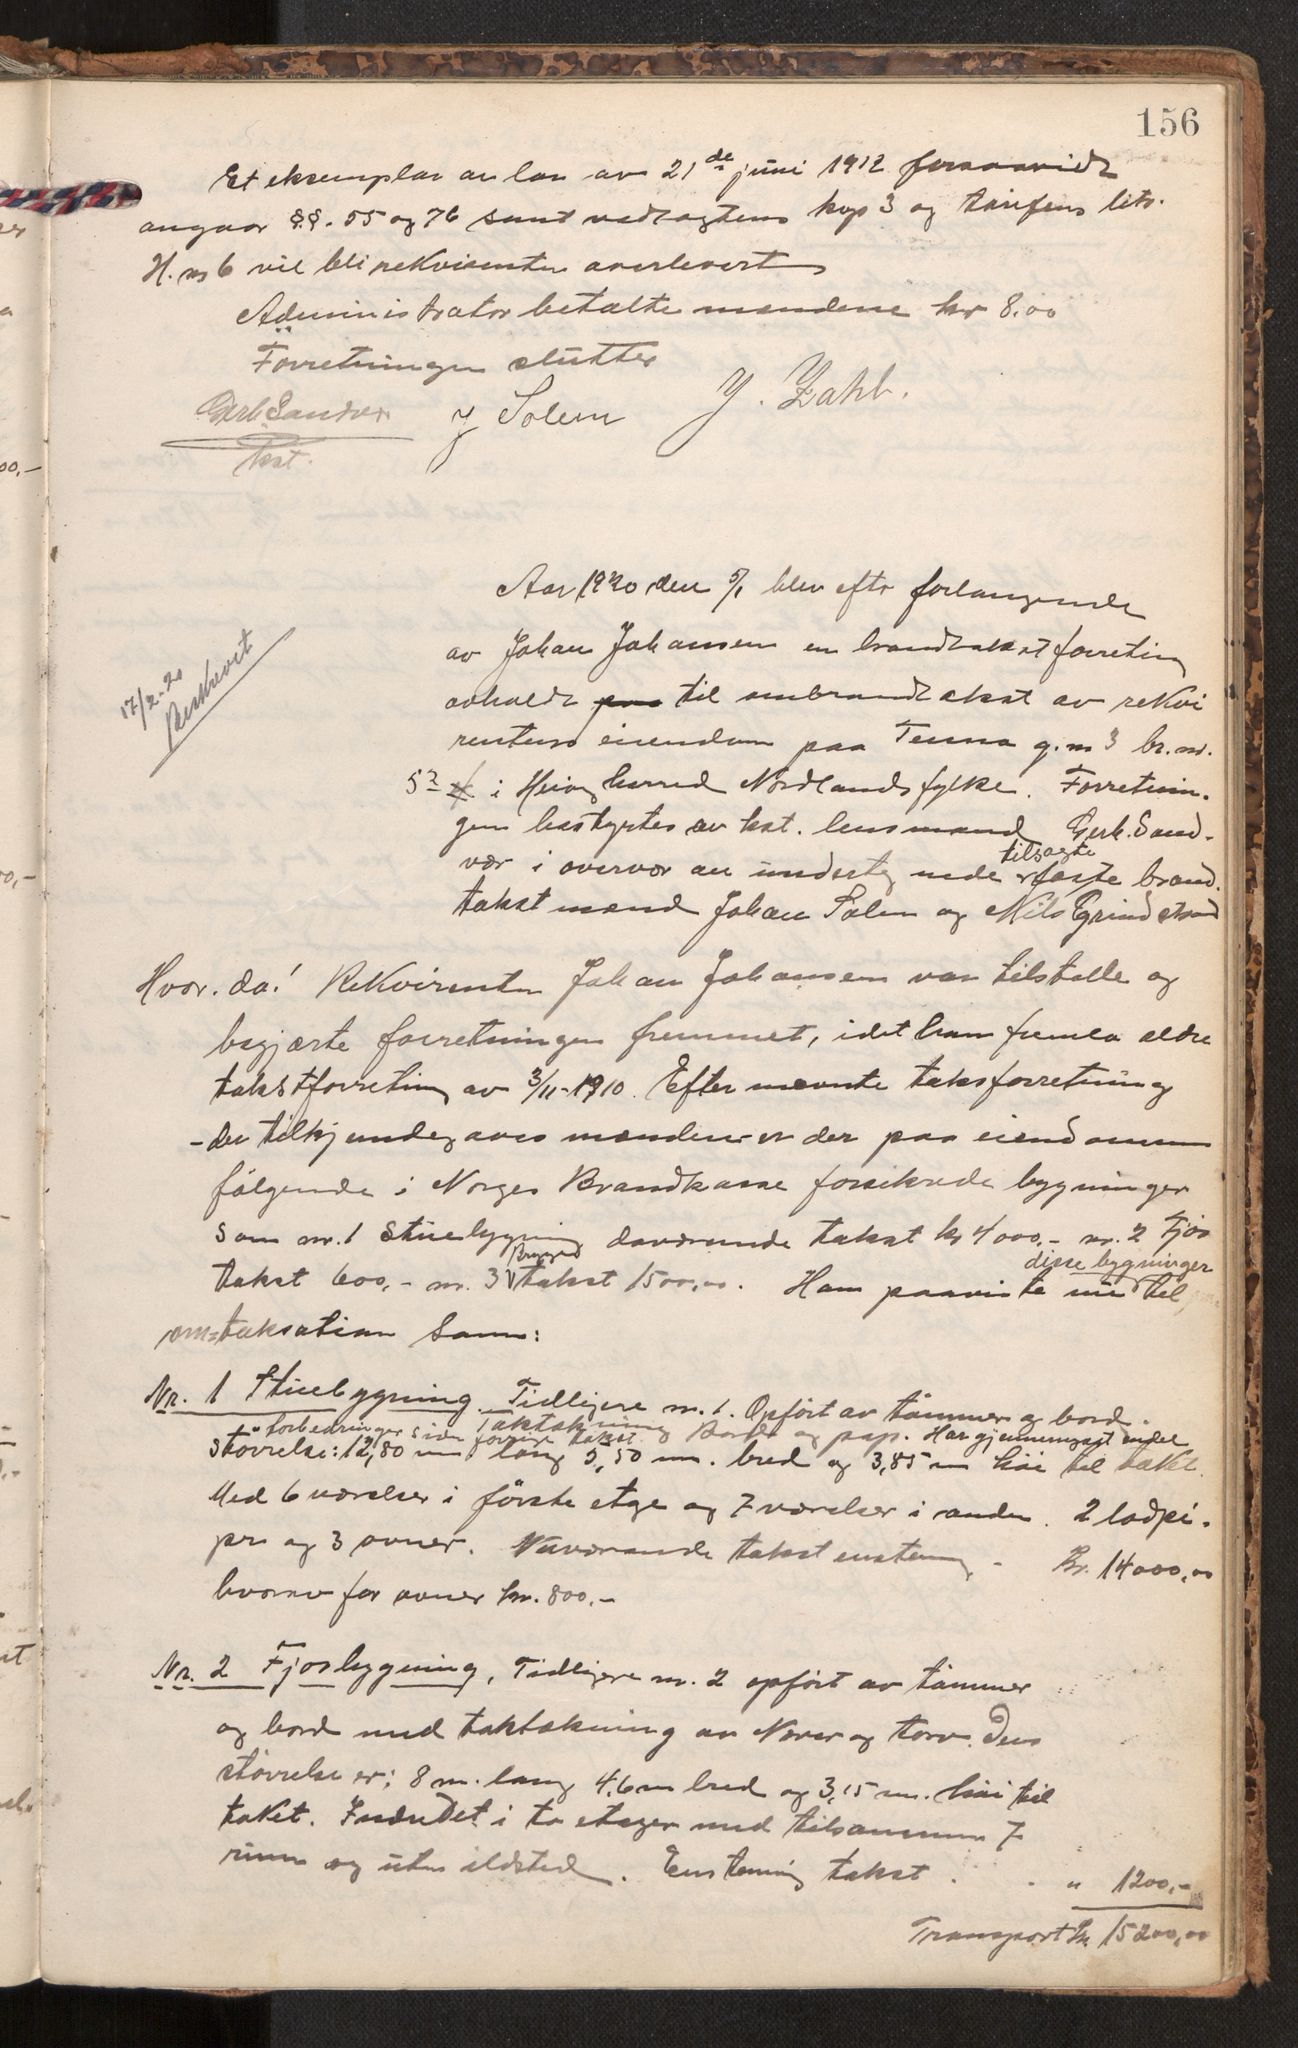 156
Et eksemplar av lov av 21de juni 1912 forsaavidt
angaar §§. 55 og 76 samt vedtagtens kap 3 og tarifens litr.
H. nr 6 vil bli rekvirenten overlevert
Administrator betalte mændene kr 8.00
Forretningen sluttet
Gerh Sandvær J Solem J. Zahl.
kst.
Aar 1920 den 5/1 blev efter forlangende
av Johan Johansen en brandtakstforretning
avholdt paa til ombrandtakst av rekvi
rentens eiendom paa Tenna g.nr 3 br.nr.
17/2-20
Beskrevet
52 i Herøy herred Nordlands fylke. Forretnin-
gen bestyrtes av kst. lensmand Gerh. Sand-
vær i overvær av undertegnede tilsagte faste brand-
takstmænd Johan Solem og Nils Grindstrand
Hvor. da! Rekvirenten Johan Johansen var tilstede og
begjærte forretningen fremmet, idet han fremla ældre
takstforretning av 3/11-1910. Efter nævnte taksforretning
- der tilkjendegaves mændene er der paa eiendommen
følgende i Norges Brandkasse forsikrede bygninger
som nr. 1 Stuebygning daværende takst kr 4000,- nr. 2 Fjøs
takst 600,- nr. 3 Brygge takst 1500,00. Han paaviste nu disse bygninger til
om=taksation som:
Nr. 1 Stuebygning. Tidligere nr. 1. Opført av tømmer og bord.
Taktækning Bord og pap. Har gjennemgaat endel
forbedringer siden forrige takst.
Størrelse: 12,80 m lang 5,50 m. bred og 3,85 m høi til taket.
Med 6 værelser i første etage og 7 værelser i anden. 2 lodpi-
per og 3 ovner. Nuværende takst enstemig - Kr. 14000,00
hvorav for ovner kr. 800.-
Nr. 2 Fjosbygning, Tidligere nr. 2 opført av tømmer
og bord med taktækning av Næver og torv. Dens
størrelse er: 8 m. lang 4,6 m bred og 3,15 m. høi til
taket. Inredet i to etager med tilsammen 7
rum og uten ildsted. Enstemig takst . . " 1200,-
Transport Kr. 15200,00